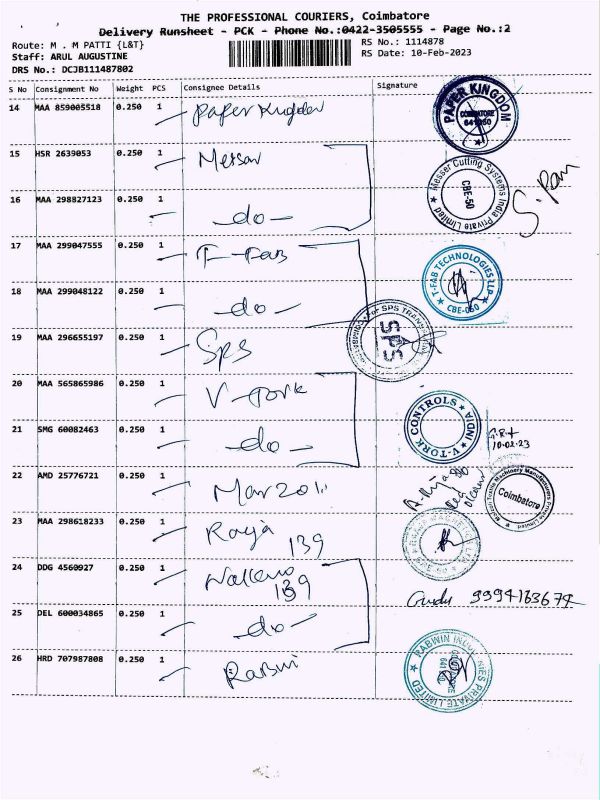 THE PROFESSIONAL COURIERS, Coimbatore
Delivery Runsheet - PCK - Phone No.:0422-3505555 - Page No.:2
Route: M . M PATTI {L&T}
RS No.: 1114878
Staff: ARUL AUGUSTINE
RS Date: 10-Feb-2023
DRS No.: DCJB111487802
S No Consignment No Weight PCS Consignee Details Signature
14 MAA 859005518 0.250 1 Paper Kingdom
PAPER KINGDOM COIMBATORE 641050
15 HSR 2639053 0.250 1 Messar
Messer Cutting Systems India Private Limited CBE-50
16 MAA 298827123 0.250 1 -do-
17 MAA 299047555 0.250 1 T-Fab
T-FAB TECHNOLOGIES LLP CBE-050
18 MAA 299048122 0.250 1 -do-
19 MAA 296655197 0.250 1 SPS
For SPS SPS
20 MAA 565865986 0.250 1 V-Tork
V-TORK CONTROLS INDIA
21 SMG 60082463 0.250 1 -do-
10.02.23
22 AMD 25776721 0.250 1
Coimbatore
23 MAA 298618233 0.250 1 Raja 139
24 DDG 4560927 0.250 1 139
9994163674
25 DEL 600034865 0.250 1 -do-
26 HRD 707987808 0.250 1 Rabwin
RABWIN INDUSTRIES PRIVATE LIMITED